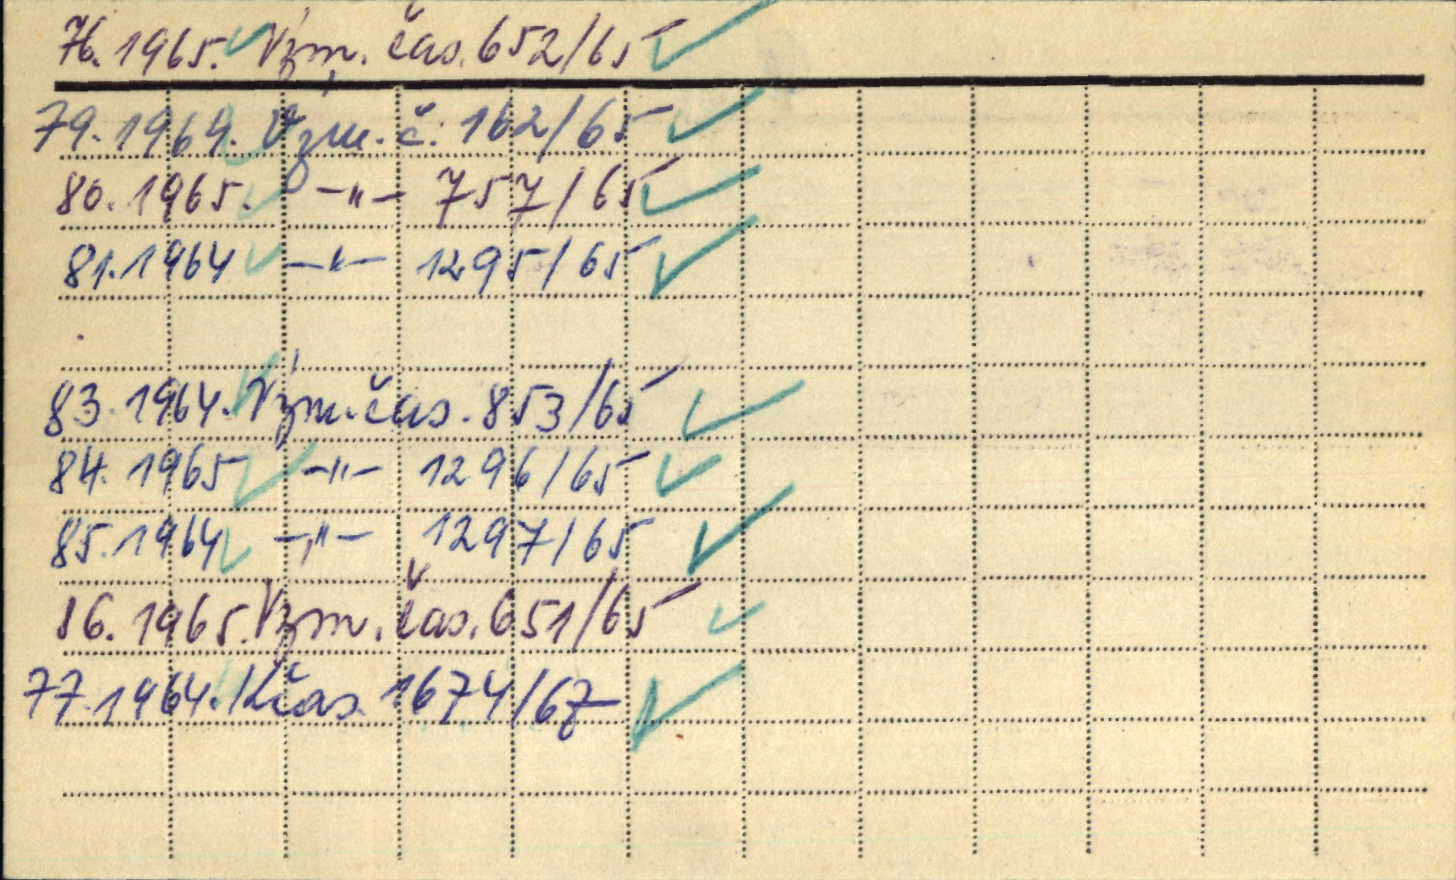 76. 1965. Vým. čas. 652/65
79. 1964. Vým. č. 162/65
80. 1965. -"- 757/65
81. 1964 -"- 1295/65
83. 1964. Vým. čas. 853/65
84. 1965 -"- 1296/65
85. 1964 -"- 1297/65
86. 1965. Vým. čas. 651/65
77. 1964. Kčas. 1674/67